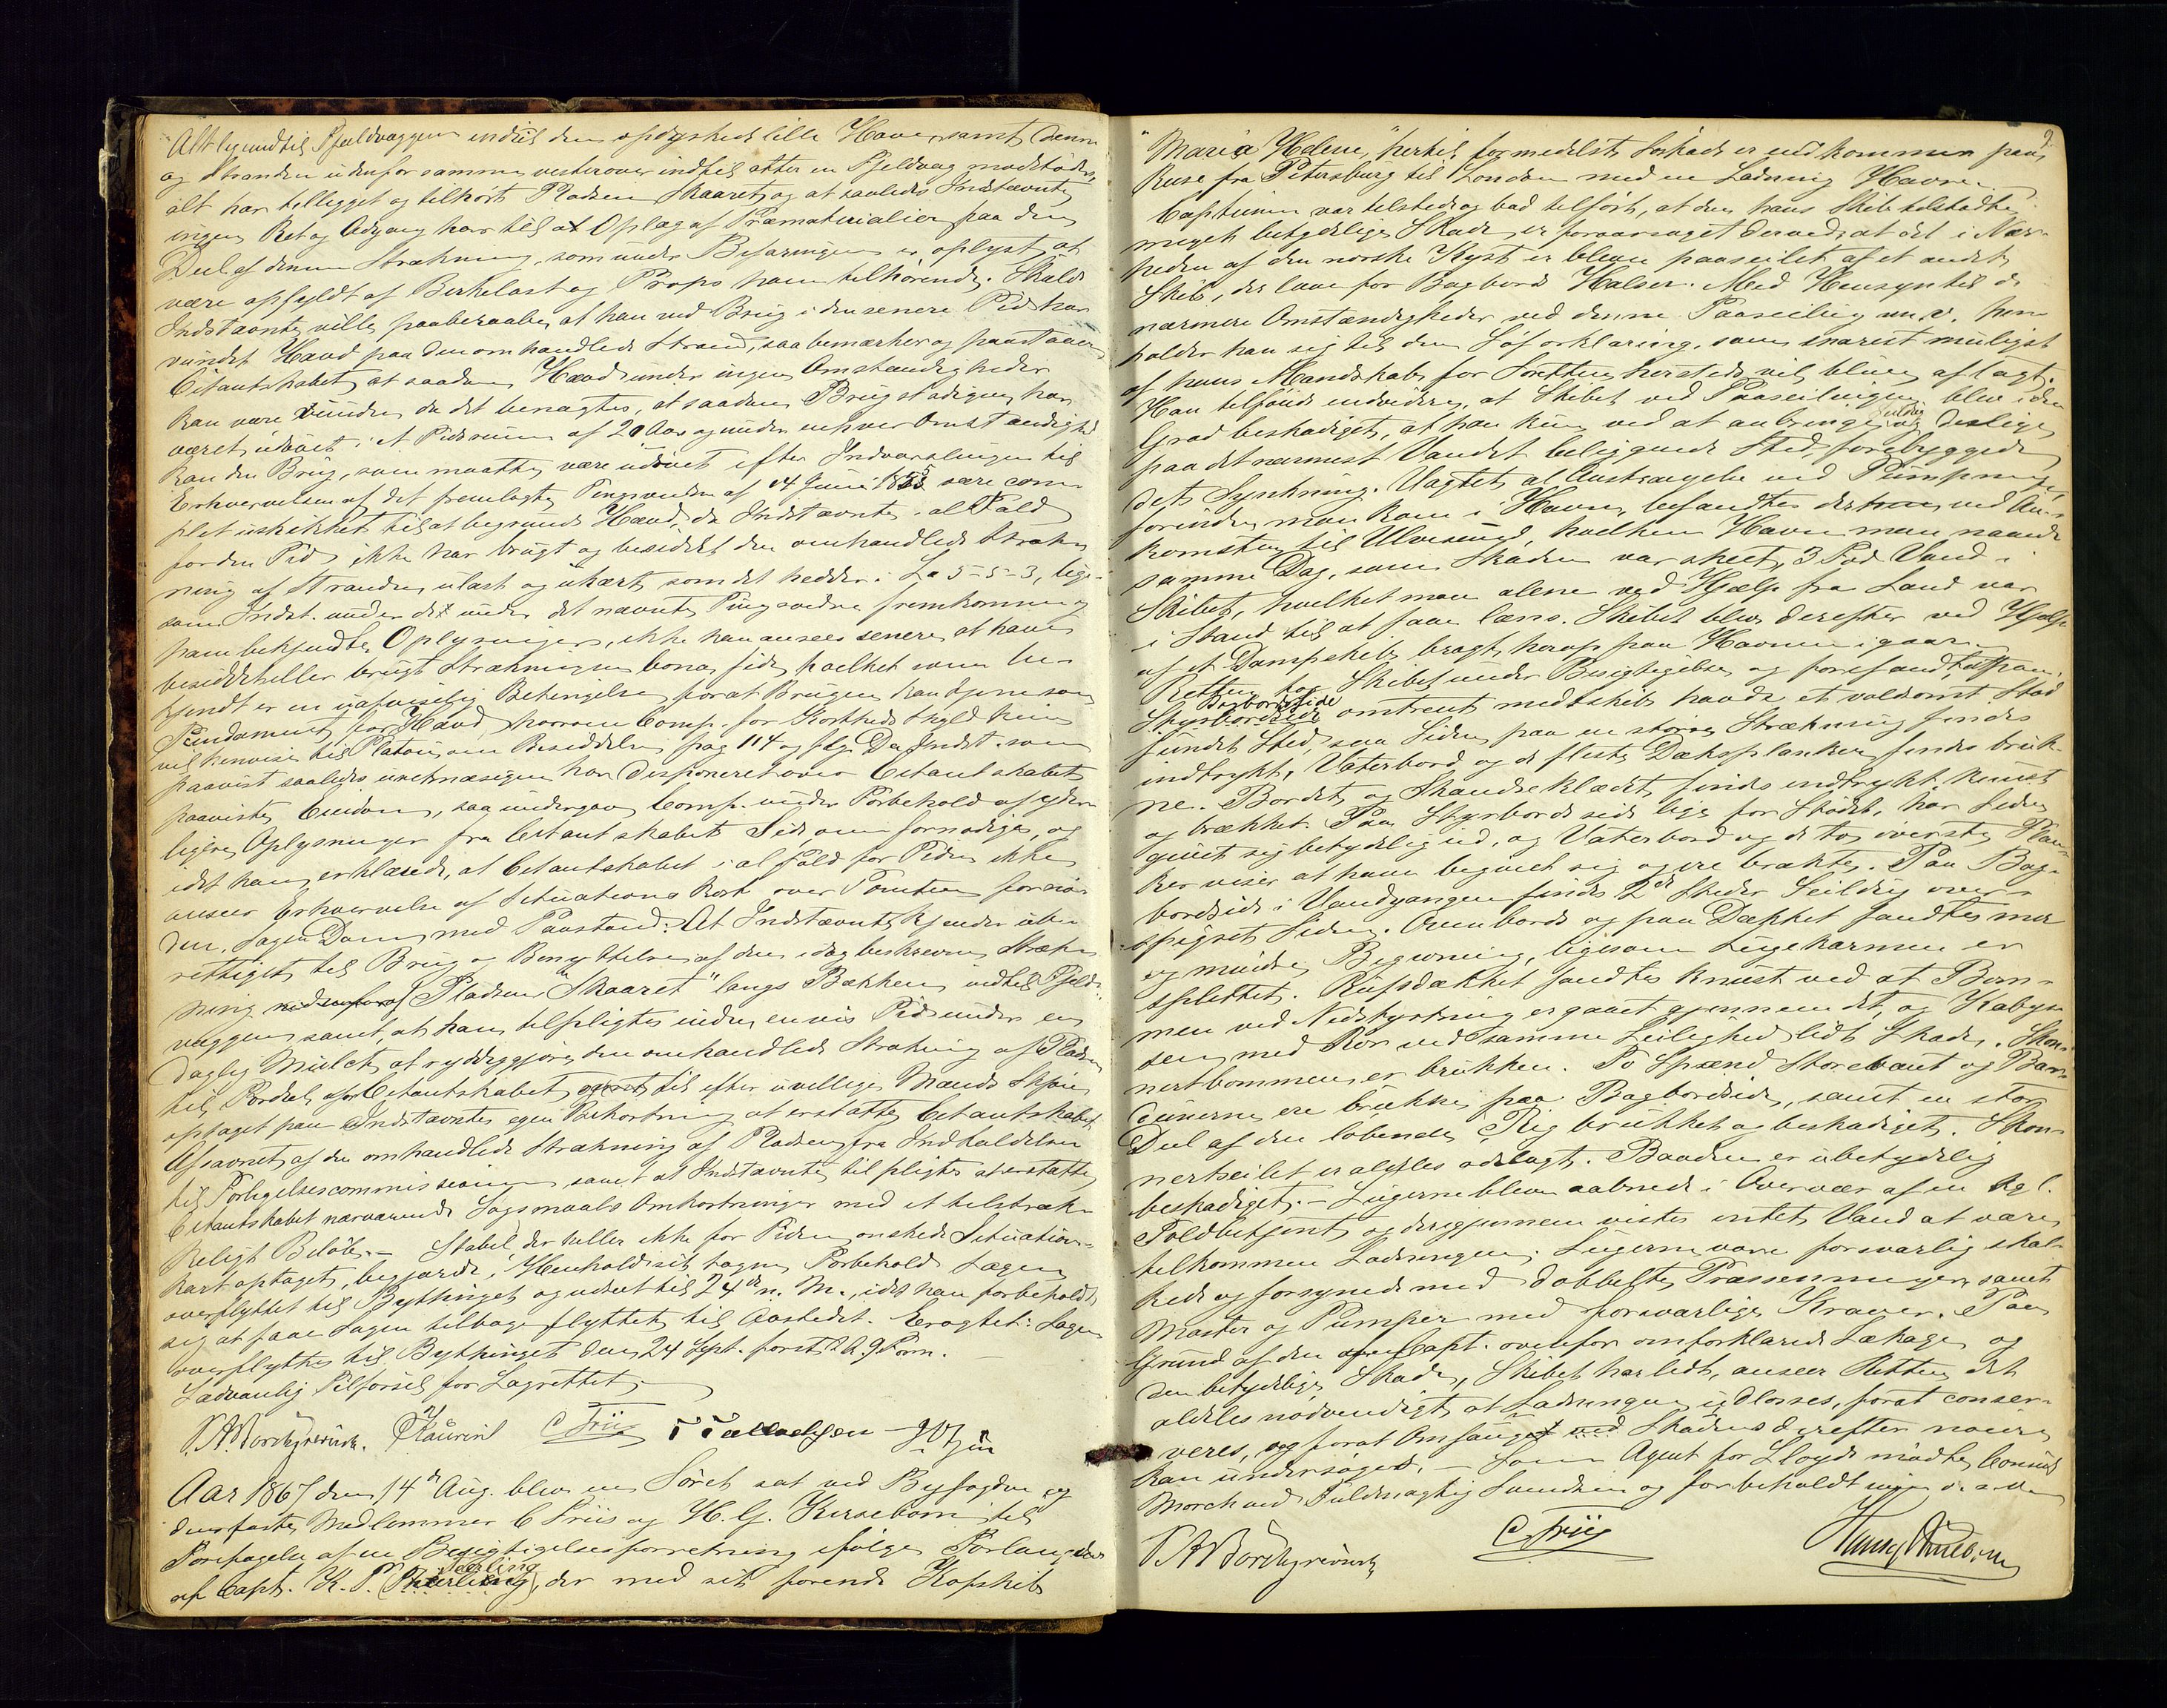 Alt liggende til Fjeldvæggen indtil den opdyrkede lille Have, samt denne
og Stranden udenfor samme vesterover indtil atter en Fjeldvæg modstøder,
alt har tilligget og tilhørt Pladsen Skaaret, og at saaledes Indstævnte
ingen Ret og Adgang har til at Oplag af Træmaterialier paa den
Deel af denne Strækning, som under Befaringen er oplyst at
være opfyldt af Birkelast og Props ham tilhørende. Skulde
Indstævnte ville paaberaabe, at han ved Brug i den senere Tid har
vundet Hævd paa den omhandlede Strand, saa bemærker og paastaaer
Citantskabet, at saadan Hævd under ingen Omstændigheder
kan være vunden, da det benægtes, at saadan Brug stadigen har
været udøvet i et Tidsrum af 20 Aar og under enhver Omstændighed
kan den Brug, som maatte være udøvet efter Indvarslingen til
Erhvervelsen af det fremlagte Tingsvidne af 14 Juni 1853 være com-
plet uskikket til at begrunde Hævd, da Indstævnte i al Fald
for den Tid ikke har brugt og besiddet den omhandlede Stræk-
ning af Stranden ulast og ukært, som det hedder i L. 5-5-3, lige-
som Indst. under det under det nævnte Tingsvidne fremkomne og
ham bekjendte Oplysninger, ikke kan ansees senere at have
besiddet eller brugt Strækningen bona fide, hvilket som be-
kjendt er en uafviselig Betingelse for at Brugen kan tjene som
Fundament for Hævd, hvorom Comp. for Kortheds Skyld kun
vil henvise til Platou om Besiddelse pag 114 og flg. Da Indst. som
paavist saaledes uretmæssigen har disponeret over Citantskabets
paaviste Eiendom, saa undergav Comp. under Forbehold af yder-
ligere Oplysninger fra Citantskabets Side, om fornødiges, og
idet han erklærede, at Citantskabet i al Fald for Tiden ikke
anseer Erhvervelse af Situationskort over Tomten fornø-
den, Sagen Dom med Paastand: At Indstævnte kjendes ube-
rettiget til Brug og Benyttelse af den idag beskrevne Stræk-
ning nedenfor af Pladsen "Skaaret" langs Bækken indtil Fjeld-
væggen samt, at han tilpligtes inden en vis Tid under en
daglig Mulct, at ryddiggjøre den omhandlede Strækning af Pladsen
til Fordel for Citantskabet, samt til efter uvillige Mænds Skjøn,
optaget paa Indstævntes egen Bekostning at erstatte Citantskabet
Afsavnet af den omhandlede Strækning af Pladsen fra Indkaldelsen
til Forligelsescommissionen samt at Indstævnte tilpligtes at erstatte
Citantskabet nærværende Søgsmaals Omkostninger med et tilstræk-
keligt Beløb. – Stabel, der heller ikke for Tiden ønskede Situations-
kart optaget, begjærede, i Henhold til sit tagne Forbehold Sagen
overflyttet til Bythinget og udsat til 24de n. M., idet han forbeholdt
sig at faae Sagen tilbageflyttet til Aastedet. Eragtet: Sagen
overflyttes til Bythinget den 24 Sept. førstk. Kl. 9 Form.
Sædvanlig Tilførsel for Lagrettet, –
P.A. Borchgrevink. Kaurin C Friis
Aar 1867 den 14de Aug. blev en Søret sat ved Byfogden og
dens faste Medlemmer C Friis og H. G. Kiersebom til
Foretagelse af en Besigtigelsesforretning ifølge Forlangende
af Capt. K. P. , der med sit førende Kofskib
2
"Maria Helene" hertil formedelst Søskade er indkommen paa
Reise fra Petersburg til London med en Ladning Havre.
Capteinen var tilstede og bad tilført, at den hans Skib tilstødte
meget betydelige Skade er foraarsaget derved, at det i Nær-
heden af den norske Kyst er bleven paaseilet af et andet
Skib, der laae for Bagbords Halser. Med Hensyn til de
nærmere Omstændigheder ved denne Paaseiling m. v. hen-
holder han sig til den Søforklaring, som snarest muligst
af hans Mandskab for Søretten hersteds vil blive aflagt.
Han tilføiede endvidere, at Skibet ved Paaseilingen blev i den
Grad beskadiget, at han kun ved at anbringe Seildug og deslige
paa det nærmest Vandet beliggende Sted, forebyggede
dets Synkning. Uagtet al Anstrængelse ved Pumpning,
forinden man kom i Havn, befandtes der ved An-
komsten til Ulvesund, hvilken Havn man naaede
samme Dag, som Skaden var skeet, 3 Fod Vand i
Skibet, hvilket man alene ved Hjælp fra Land var
i Stand til at faae læns. Skibet blev derefter ved Hjælp
af et Dampskib bragt herop paa Havnen igaar.
Retten tog Skibet under Besigtigelse og forefandt, at paa
Styrbordside Bagbordside omtrent midtskibs havde et voldsomt Stød
fundet Sted, saa Siden paa en større Strækning fandtes
indtrykt, Vaterbord og de fleste Dæksplanker fandtes bruk-
ne. Bordet og Skandseklædet fandtes indtrykt, knust
og brækket. Paa Styrbords side lige for Stødet, har Siden
givet sig betydelig ud, og Vaterbord og de to øverste Plan-
ker viser at have begivet sig og ere brækte. Paa Bag-
bordside i Vandgangen fandtes 2de Steder Seildug over-
spigret Siden. Ovenbords og paa Dækket fandtes mer
og mindre Begivning, ligesom Lugekarmen er
splittet. Rufsdækket fandtes knust ved at Bom-
men ved Nedstyrtning er gaaet gjennem det, og Kabys-
sen med Rør ved samme Leilighed lidt Skade. Skon-
nertbommen er brukken. To Spænd Storevant og Bar-
dunerne ere brukne paa Bagbordside, samt en stor
Deel af den løbende Rig brukket og beskadiget. Skon-
nertseilet er aldeles ødelagt. Baaden er ubetydelig
beskadiget. – Lugerne bleve aabnede i Overvær af en kgl.
Toldbetjent og derigjennem vistes intet Vand at være
tilkommen Ladningen. Lugerne vare forsvarlig skal-
kede og forsynede med dobbelte Præsenninger, samt
Master og Pumper med forsvarlige Kraver. Paa
Grund af den af Capt. ovenfor omforklarede Lækage og
den betydelige Skade, Skibet har lidt, anseer Retten det
aldeles nødvendigt at Ladningen udlosses, forat conser-
veres, og forat Omfanget ved Skadens derefter nøiere
kan undersøges. – Som Agent for Lloyds mødte Consul
Morch ved Fuldmægtig Svendsen og forbeholdt
P.A. Borchgrevink C Friis